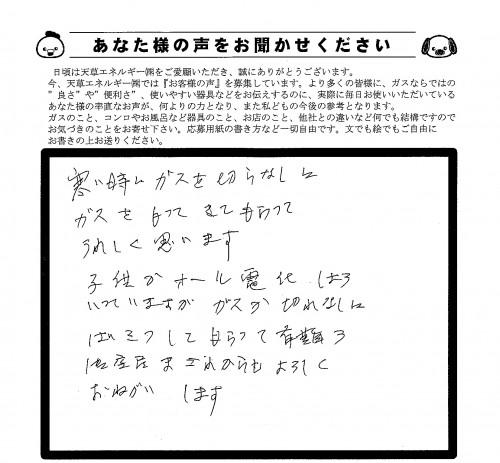 あなた様の声をお聞かせください
日頃は天草エネルギー㈱をご愛顧いただき、誠にありがとうございます。
今、天草エネルギー㈱では『お客様の声』を募集しています。より多くの皆様に、ガスならではの
"良さ"や"便利さ"、使いやすい器具などをお伝えするのに、実際に毎日お使いいただいている
あなた様の率直なお声が、何よりの力となり、また私どもの今後の参考となります。
ガスのこと、コンロやお風呂など器具のこと、お店のこと、他社との違いなど何でも結構ですので
お気づきのことをお寄せ下さい。応募用紙の書き方など一切自由です。文でも絵でもご自由に
お書きの上お送りください。
寒い時に ガスを 切らなしに
ガスを もって きて もらって
うれしく 思います
子供が オール 電化
いっていますが ガスが 切れなしに
して もらって
これからも よろしく
おねがい します